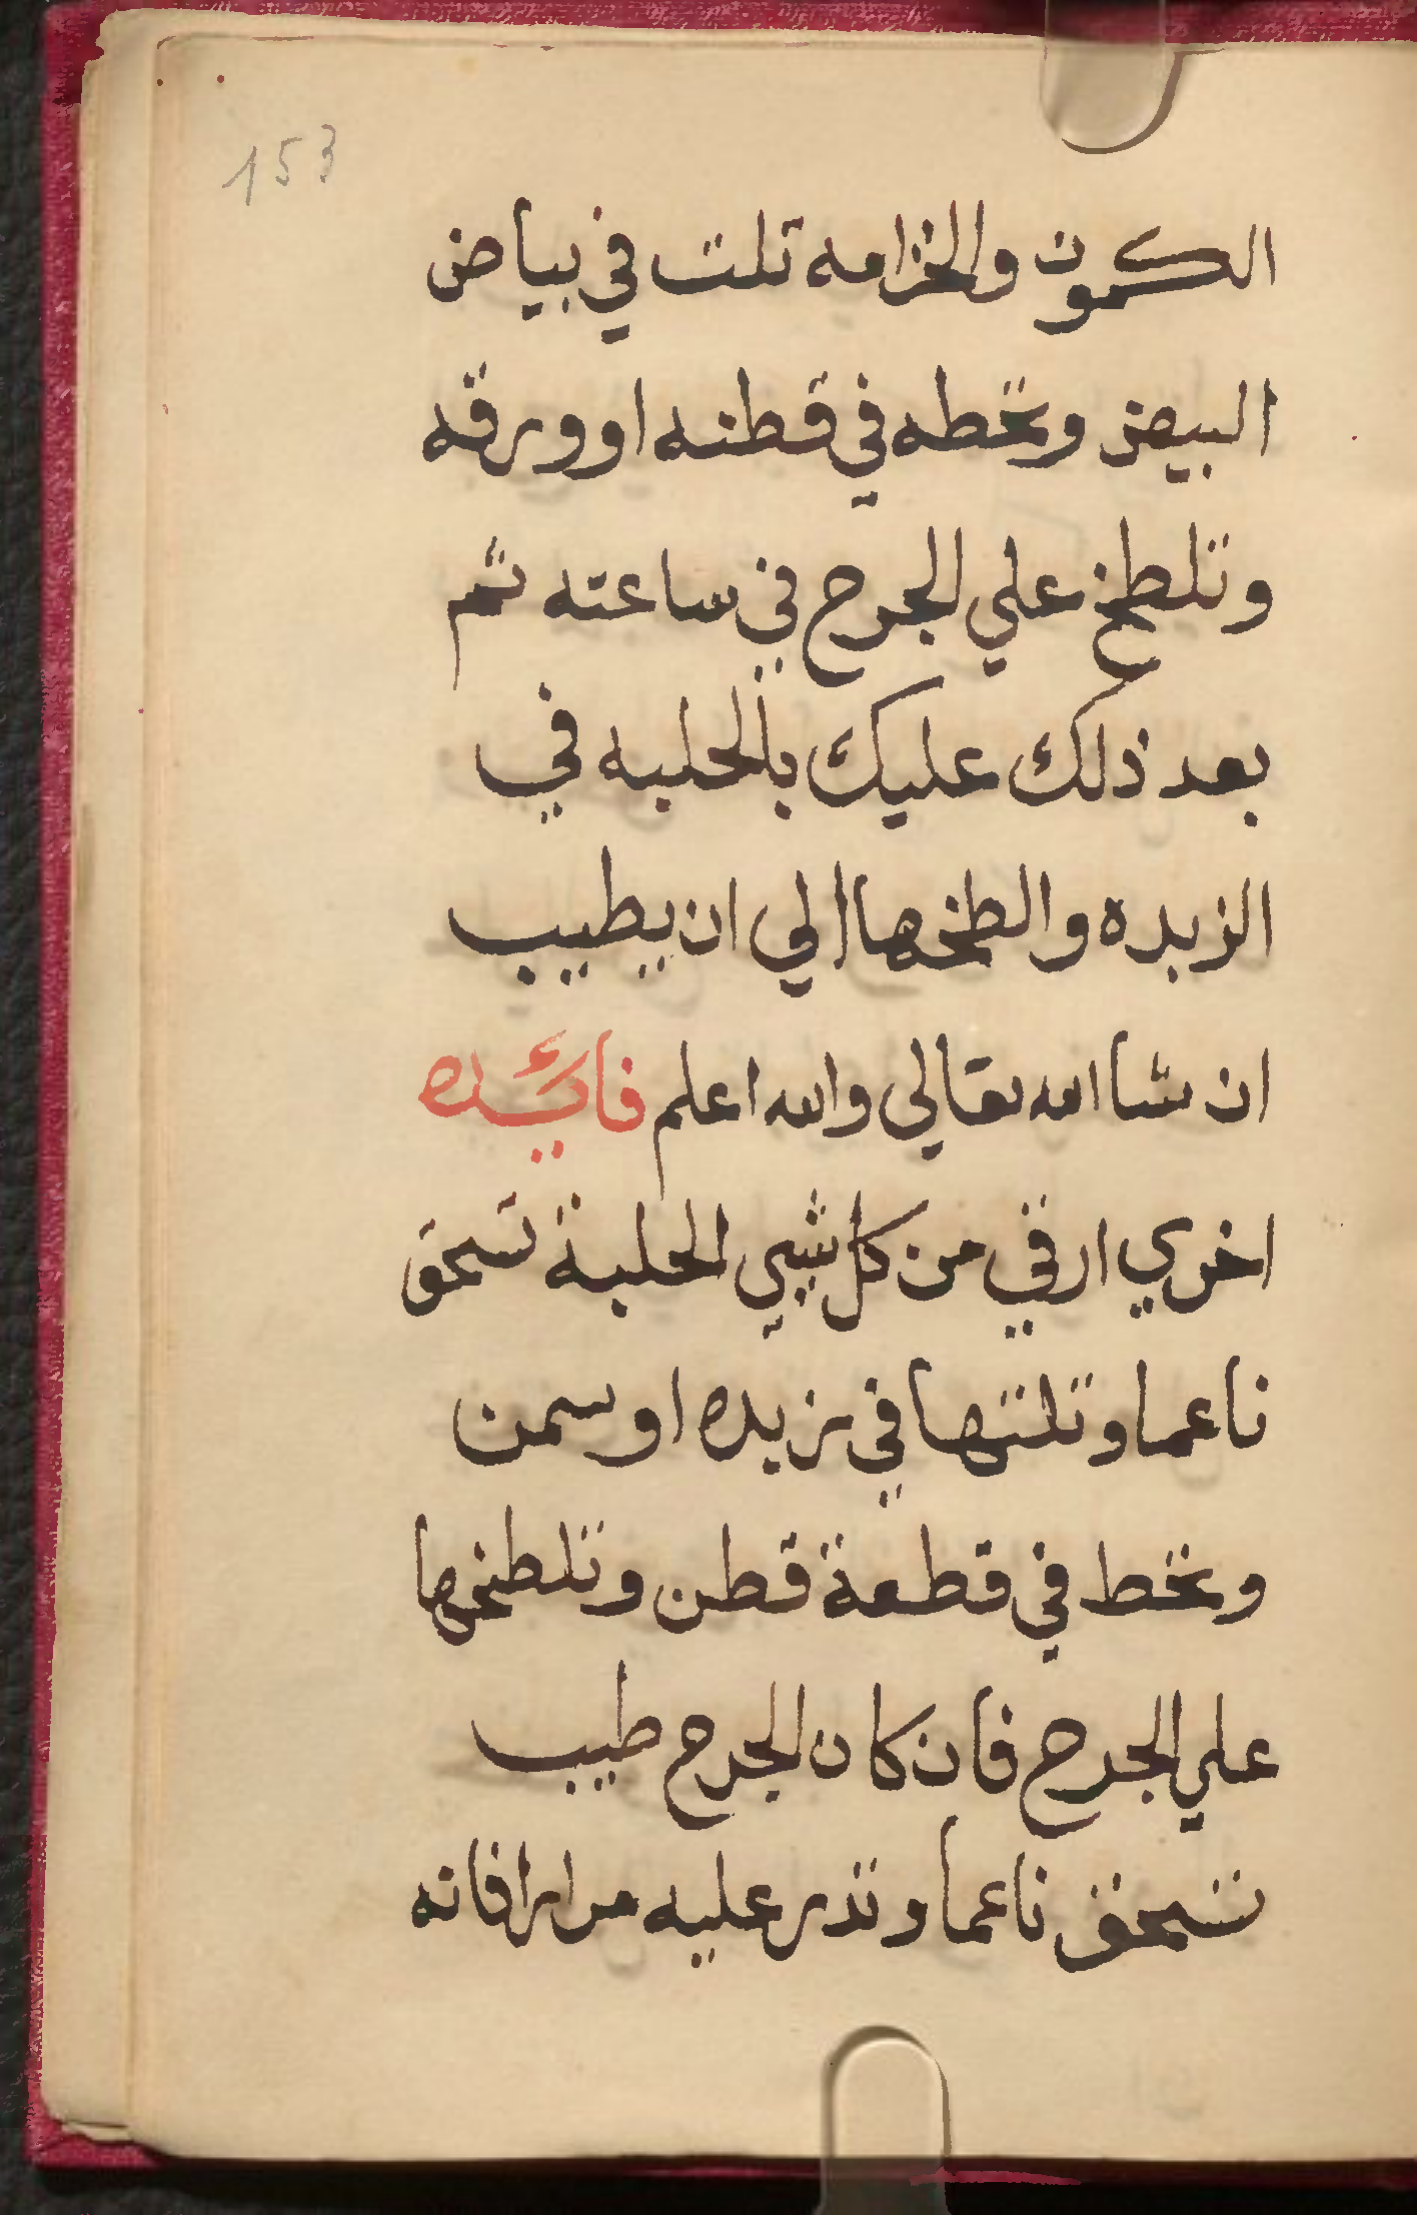 153
الكمون والخزامه تلت في بياض
البيض وتخطه في قطنه او ورقه
وتلطخ علي الجرح في ساعته ثم
بعد ذلك عليك بالحلبه في
الزبده والطخها الي ان يطيب
ان شا الله تعالي والله اعلم فائده
اخري ارقي من كل شيي الحلبة تسحق
ناعما وتلتها في زبده او سمن
وتخط في قطعة قطن وتلطخها
علي الجرح فان كان الجرح طيب
تسحق ناعما وتذر عليه مرارا فانه